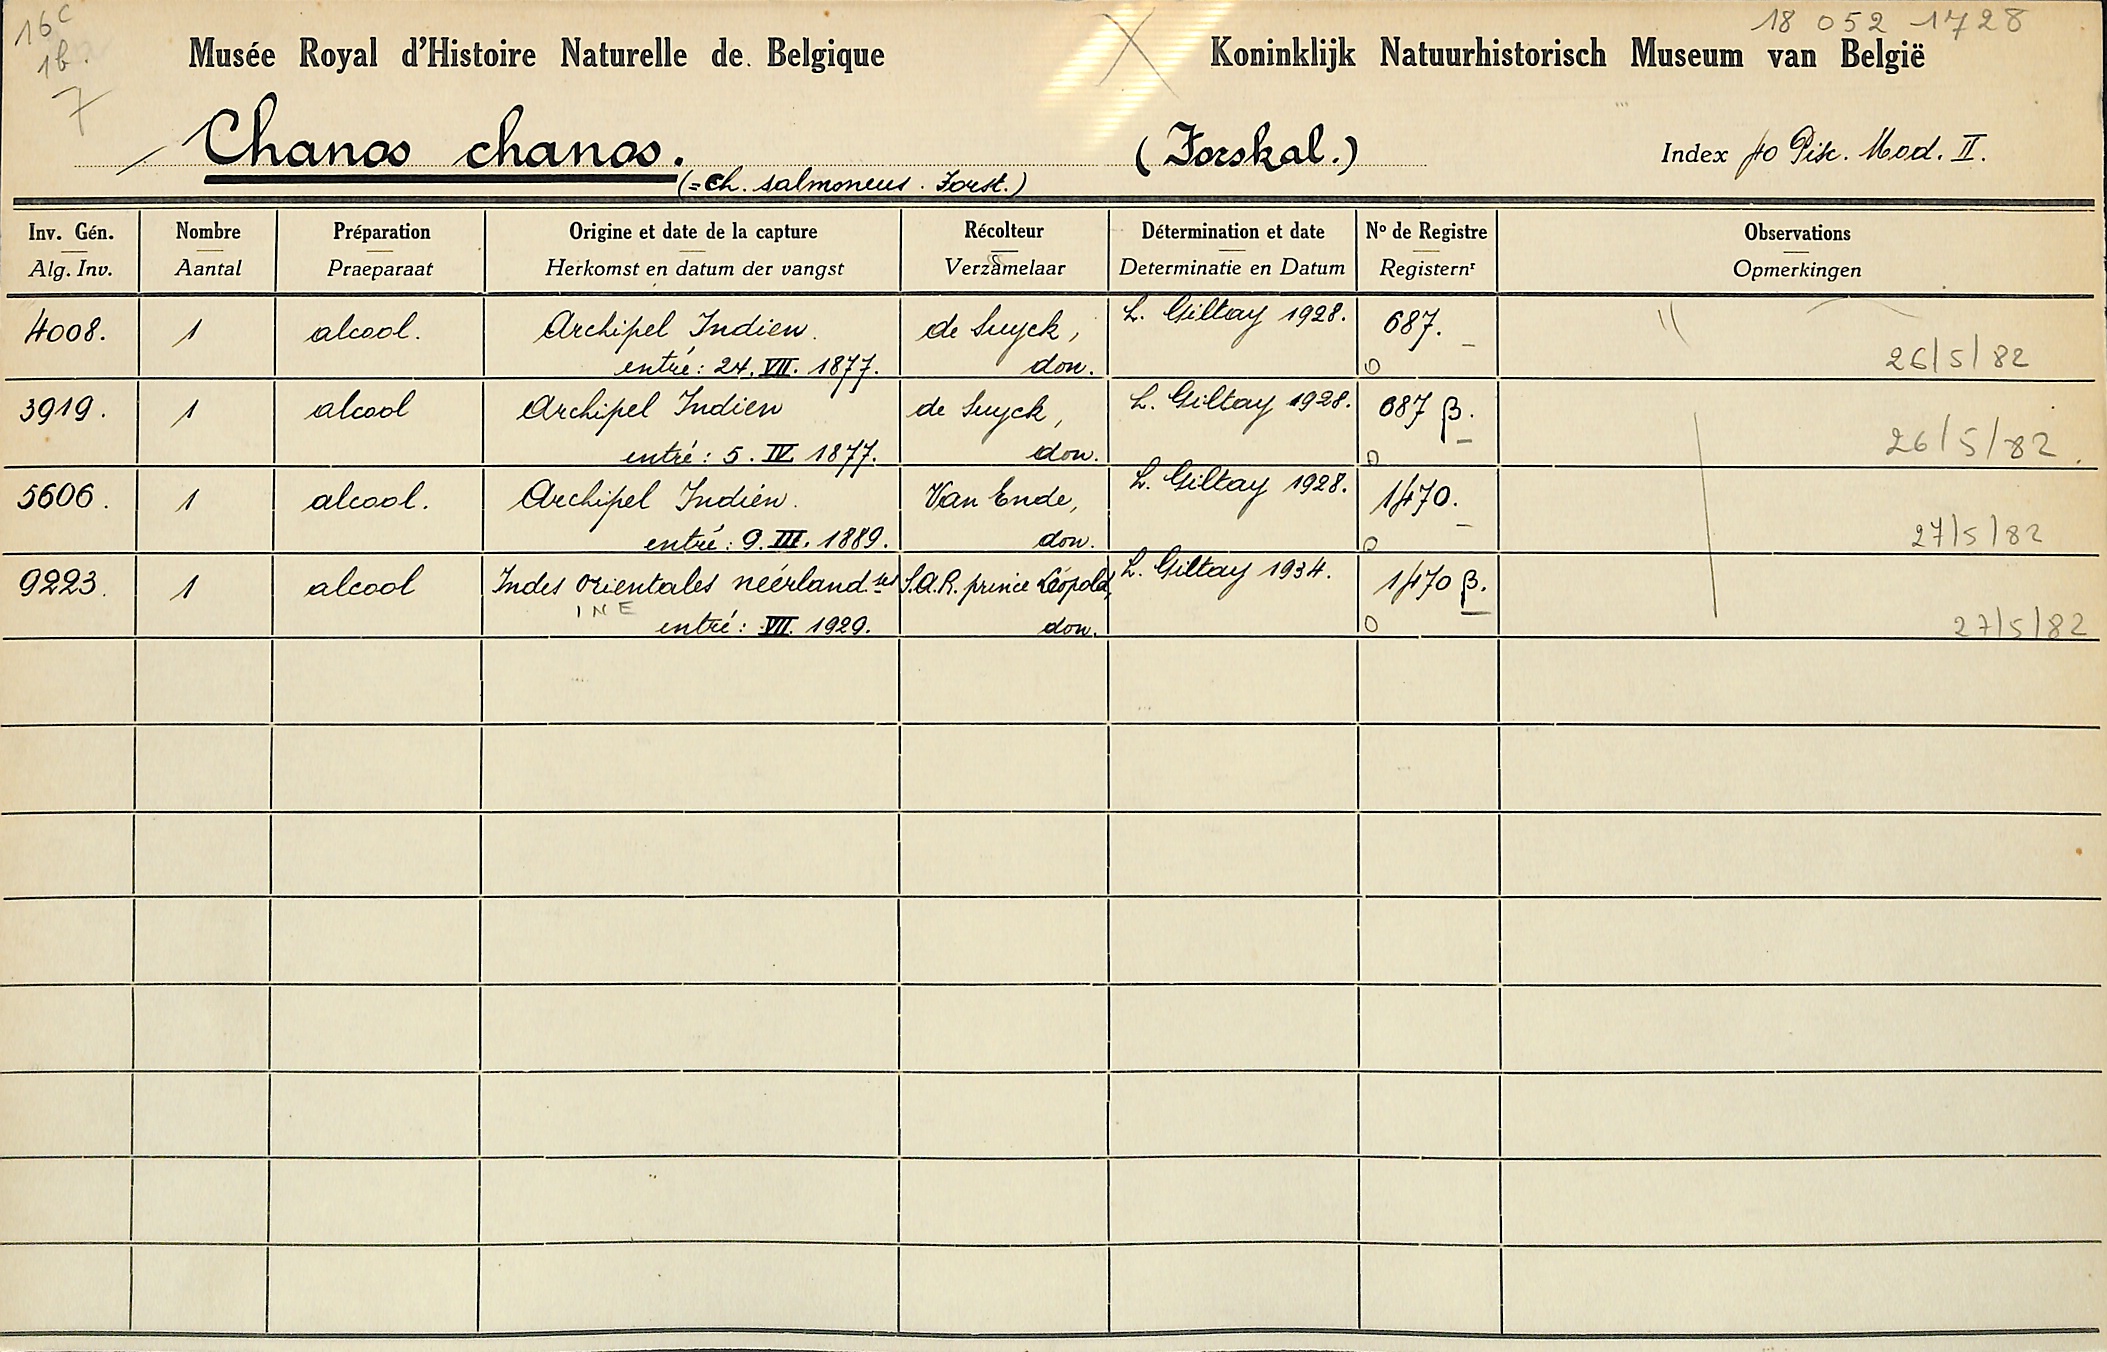 16c
1b.
7
18 052 1728
Musée Royal d'Histoire Naturelle de Belgique
Koninklijk Natuurhistorisch Museum van België
Chanos chanos. (Forskal.)
Index fo Pisc. Mod. II.
(= Ch. salmoneus. Forst.)
Inv. Gén. Nombre Préparation Origine et date de la capture Récolteur Détermination et date No de Registre Observations
Alg. Inv. Aantal Praeparaat Herkomst en datum der vangst Verzamelaar Determinatie en Datum Registernr Opmerkingen
4008. 1 alcool. Archipel Indien. de Suyck, L. Giltay 1928. 687.
entré: 24. VII. 1877. don. 26/5/82
3919. 1 alcool Archipel Indien de Suyck, L. Giltay 1928. 687 β.
entré: 5. IV 1877. don. 26/5/82
5606. 1 alcool. Archipel Indien. Van Ende, L. Giltay 1928. 1470.
entré: 9. III. 1889. don. 27/5/82
9223. 1 alcool Indes orientales néerland.ses S.A.R. prince Léopold, L. Giltay 1934. 1470 β.
INE
entré: VII. 1929. don. 27/5/82